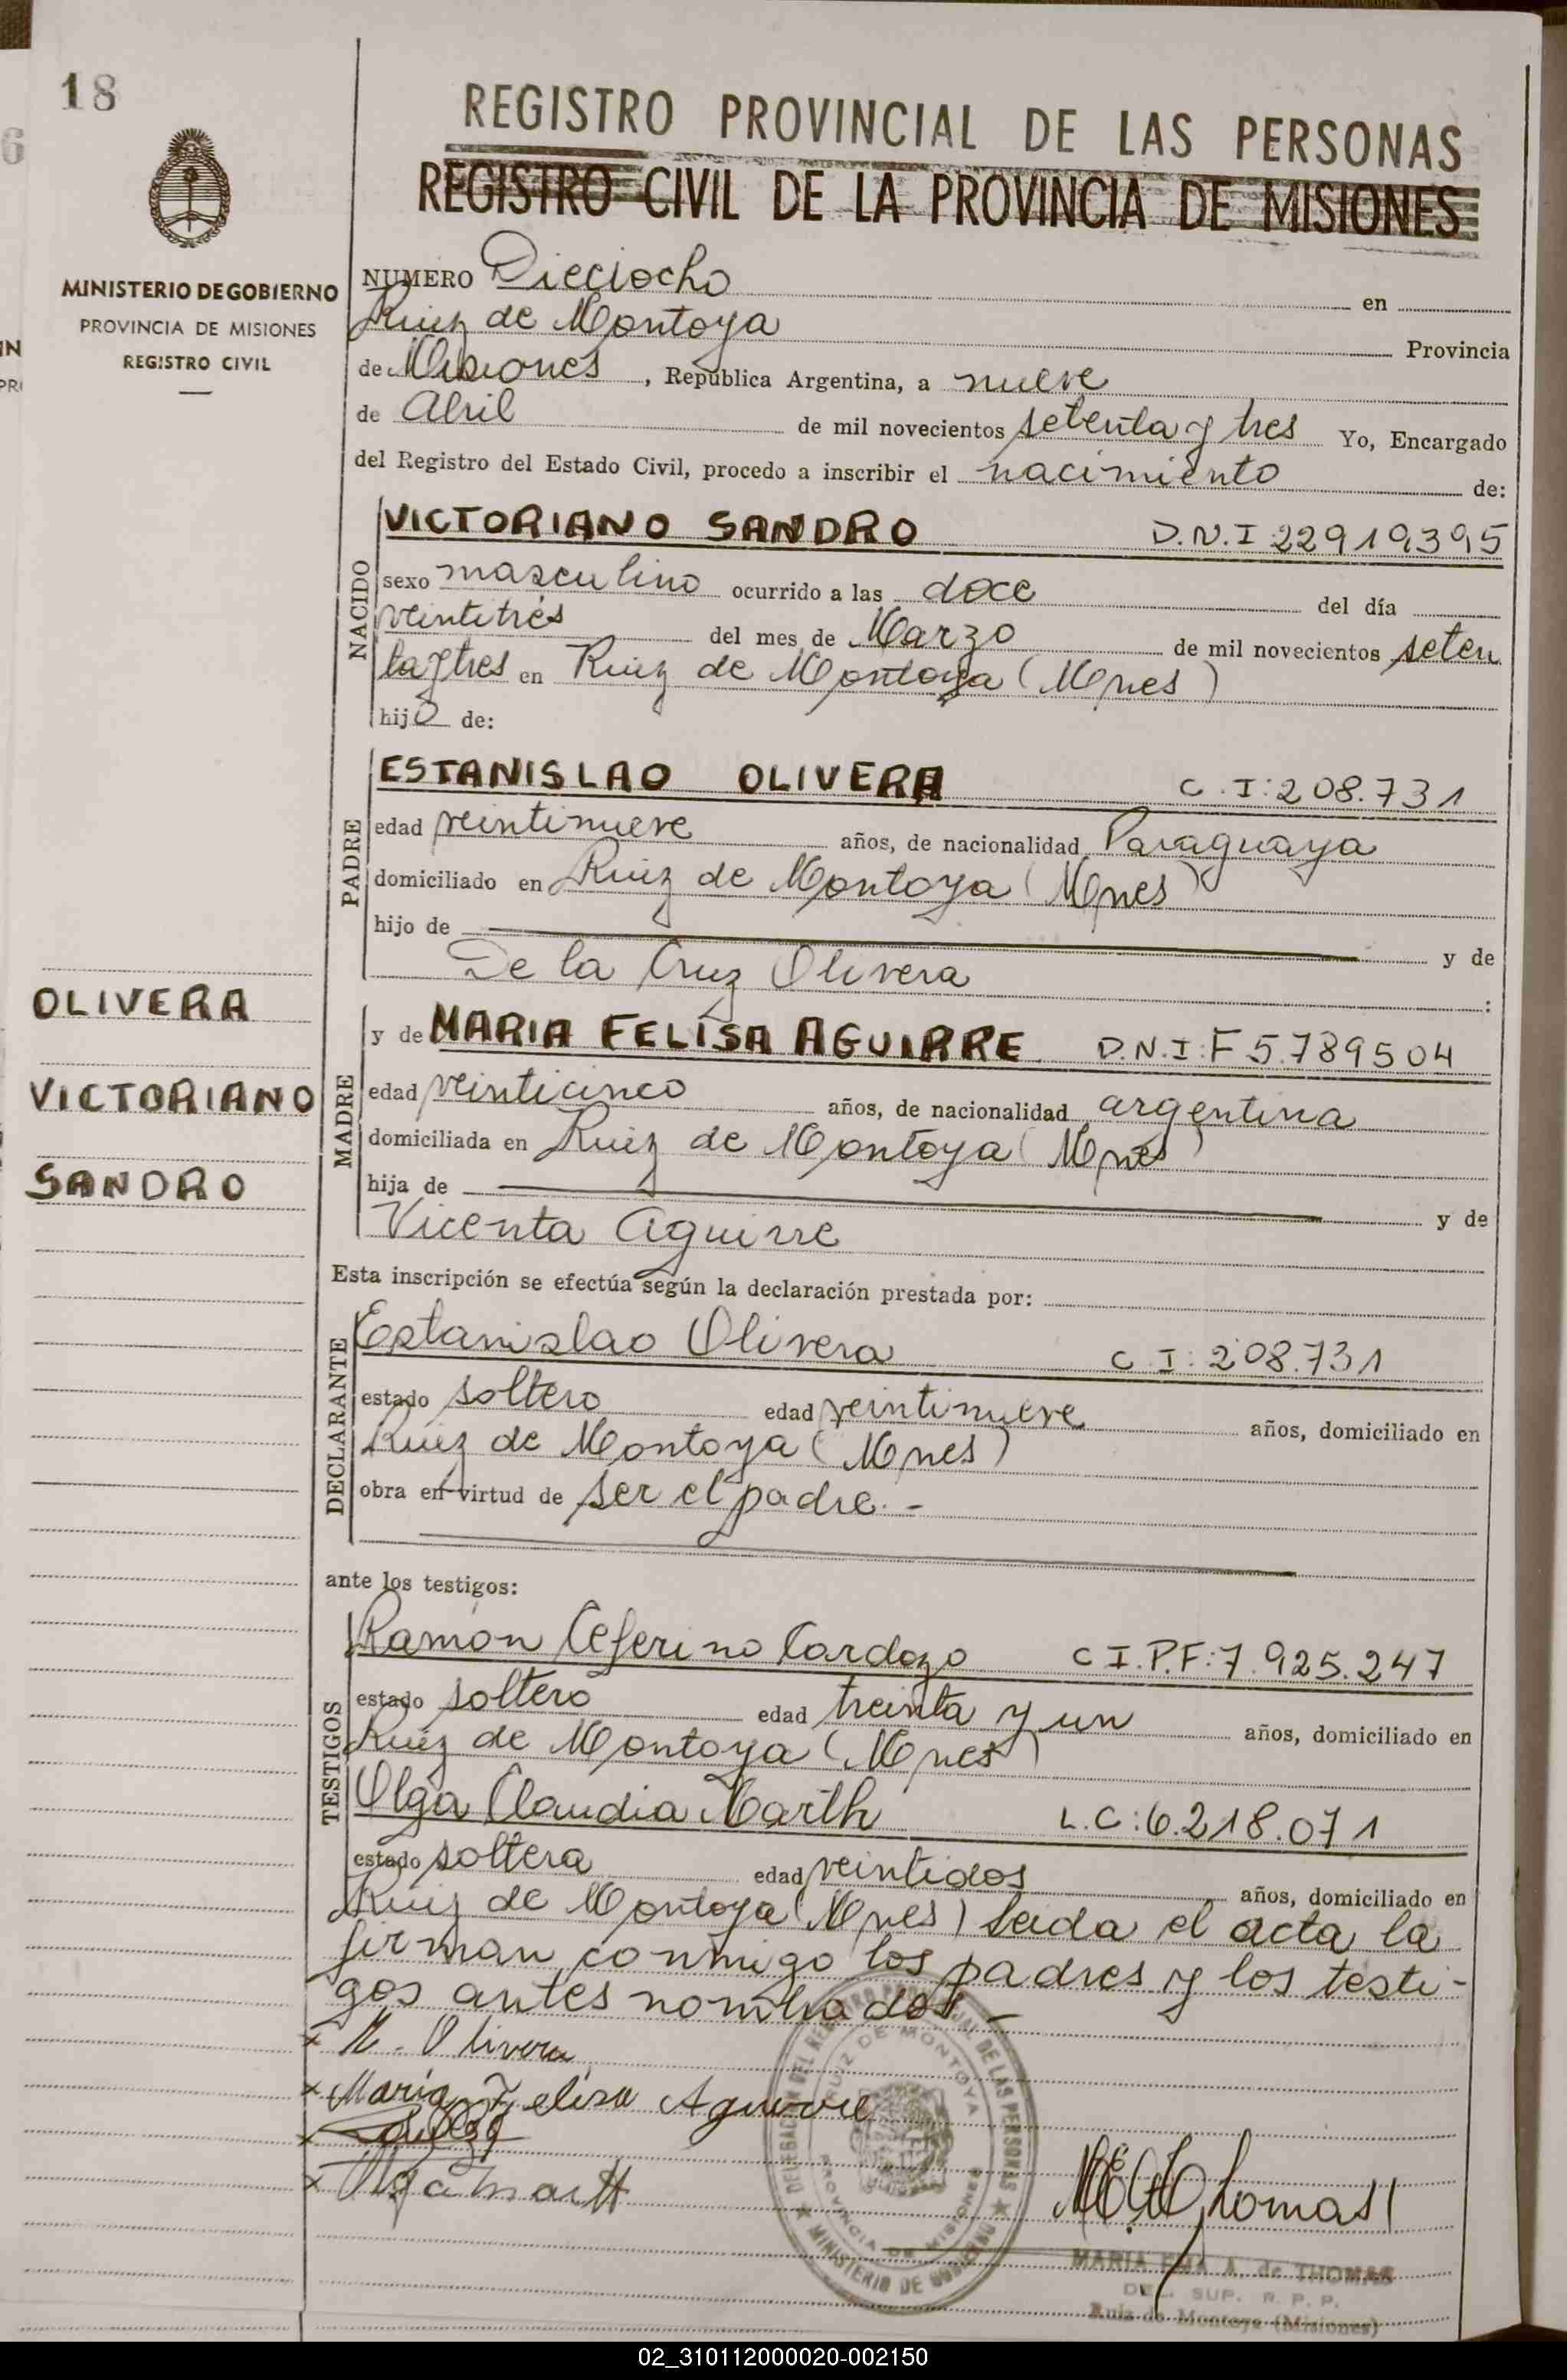 18
REGISTRO PROVINCIAL DE LAS PERSONAS
REGISTRO CIVIL DE LA PROVINCIA DE MISIONES
MINISTERIO DE GOBIERNO
PROVINCIA DE MISIONES
REGISTRO CIVIL
NUMERO Dieciocho en
Ruiz de Montoya Provincia
de Misiones, República Argentina, a nueve
de Abril de mil novecientos setenta y tres Yo, Encargado
del Registro del Estado Civil, procedo a inscribir el nacimiento de:
NACIDO
VICTORIANO SANDRO D.N.I 22919395
sexo masculino ocurrido a las doce del día
veintitrés del mes de Marzo de mil novecientos seten
ta y tres en Ruiz de Montoya (Mnes)
hijo de:
PADRE
ESTANISLAO OLIVERA C.I: 208.731
edad veintinueve años, de nacionalidad Paraguaya
domiciliado en Ruiz de Montoya (Mnes)
hijo de y de
De la Cruz Olivera :
OLIVERA
VICTORIANO
SANDRO
MADRE
y de MARIA FELISA AGUIRRE D.N.I: F 5.789504
edad veinticinco años, de nacionalidad argentina
domiciliada en Ruiz de Montoya (Mnes)
hija de y de
Vicenta Aguirre
Esta inscripción se efectúa según la declaración prestada por:
DECLARANTE
Estanislao Olivera C.I: 208.731
estado soltero edad veintinueve años, domiciliado en
Ruiz de Montoya (Mnes)
obra en virtud de ser el padre.-
ante los testigos:
TESTIGOS
Ramón Ceferino Cardozo C I.P.F: 7.925.247
estado soltero edad treinta y un años, domiciliado en
Ruiz de Montoya (Mnes)
Olga Claudia Marth L.C: 6.218.071
estado soltera edad veintidos años, domiciliado en
Ruiz de Montoya (Mnes) Leida el acta la
firman conmigo los padres y los testi-
gos antes nombrados.-
x Olivera
x Maria Felisa Aguirre
x
x Olga Marth
DELEGACION DEL REGISTRO PROVINCIAL DE LAS PERSONAS
RUIZ DE MONTOYA
PROVINCIA DE MISIONES
MINISTERIO DE GOBIERNO
Thomas
MARIA EMA A. de THOMAS
DEL. SUP. R. P. P.
Ruiz de Montoya (Misiones)
02_310112000020-002150